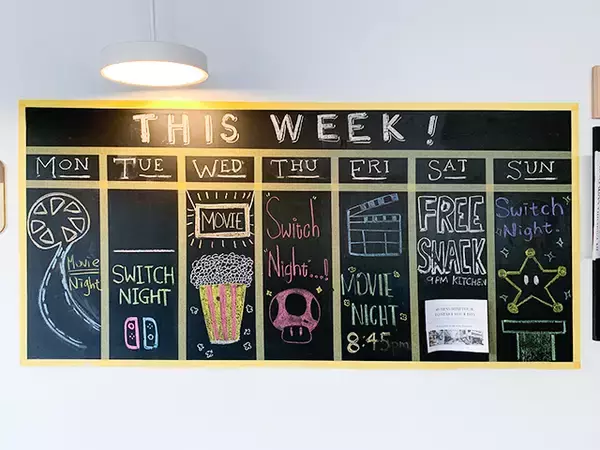 THIS WEEK!
MON
TUE
WED
THU
FRI
SAT
SUN
Movie
Night
SWITCH
NIGHT
MOVIE
Switch
Night"...!
MOVIE
NIGHT
8:45pm
FREE
SNACK
9PM KITCHEN
Switch
Night.